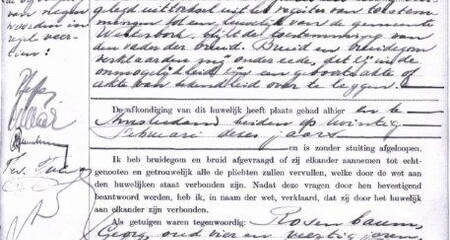 van
wooiden in
gelegd uittreksel uit het register van toestem-
mingen tot een huwelijk van de gemeente
Westerbork, blijkt de toestemming van
den vader der bruid. Bruid en bruidegom
verklaarden mij onder eede, dat zij in de
onmogelijkheid zijn een geboorteakte of
akte van bekendheid over te leggen.
De afkondiging van dit huwelijk heeft plaats gehad alhier en te
Amsterdam beiden op twintig
Februari dezes jaars
en is zonder stuiting afgeloopen.
Ik heb bruidegom en bruid afgevraagd of zij elkander aannemen tot echt-
genooten en getrouwelijk alle de plichten zullen vervullen, welke door de wet aan
den huwelijken staat verbonden zijn. Nadat deze vragen door hen bevestigend
beantwoord werden, heb ik, in naam der wet, verklaard, dat zij door het huwelijk
aan elkander zijn verbonden.
Als getuigen waren tegenwoordig: Rosenbaum,
Georg, oud vier en veertig jaren,